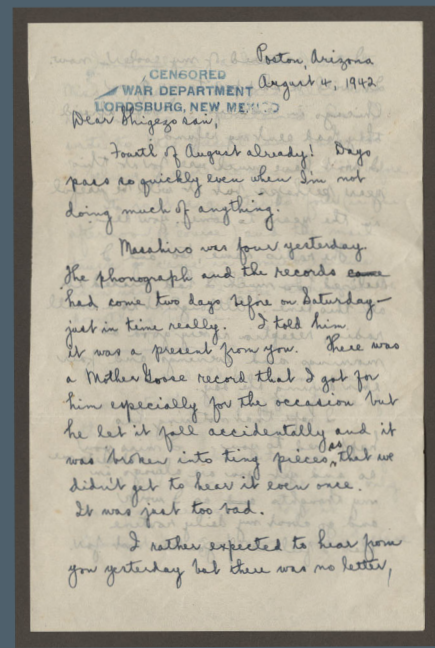 Poston, Arizona
CENSORED
WAR DEPARTMENT
August 4, 1942
LORDSBURG, NEW MEXICO
Dear Shigezo san,
Fourth of August already! Days
pass so quickly even when I'm not
doing much of anything.
Masahiro was four yesterday.
The phonograph and the records came
had come two days before on Saturday—
just in time really. I told him
it was a present from you. There was
a Mother Goose record that I got for
him especially for the occasion but
he let it fall accidentally and it
was broken into tiny pieces so that we
didn't get to hear it even once.
It was just too bad.
I rather expected to hear from
you yesterday but there was no letter,